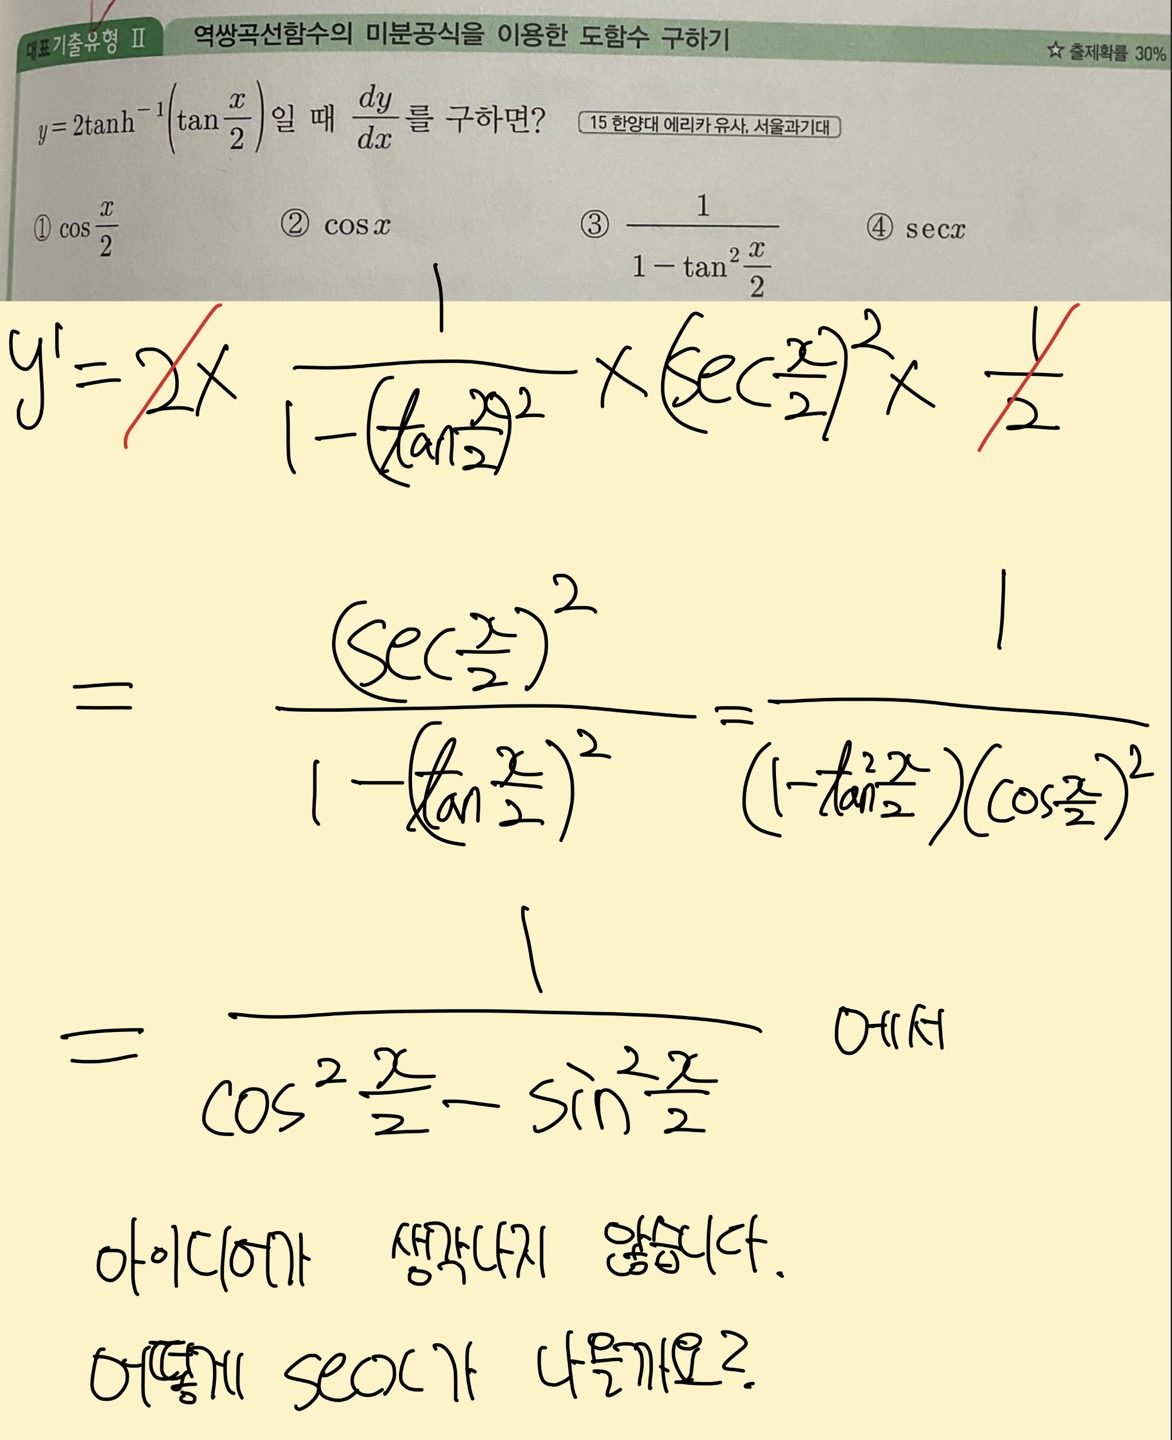 대표기출유형 Ⅱ 역쌍곡선함수의 미분공식을 이용한 도함수 구하기 ☆ 출제확률 30%
y=2tanh⁻¹(tan x/2)일 때 dy/dx를 구하면? 15 한양대 에리카 유사, 서울과기대
① cos x/2 ② cosx ③ 1/(1-tan² x/2) ④ secx
y' = 2 × 1/(1-(tan x/2)²) × (sec x/2)² × 1/2
= (sec x/2)²/(1-(tan x/2)²) = 1/((1-tan² x/2)(cos x/2)²)
= 1/(cos² x/2 - sin² x/2) 에서
아이디어가 생각나지 않습니다.
어떻게 secx가 나올까요?